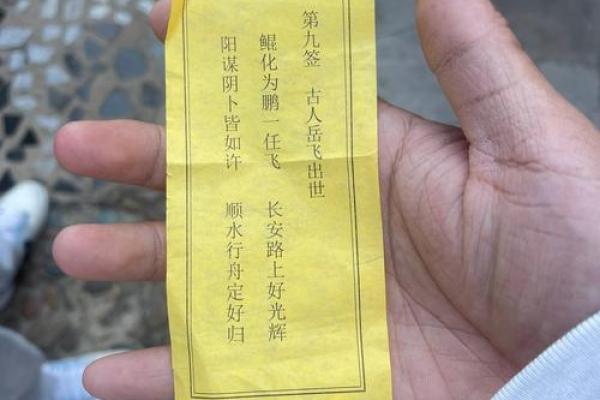 第九签 古人岳飞出世
鲲化为鹏一任飞 长安路上好光辉
阳谋阴卜皆如许 顺水行舟定好归